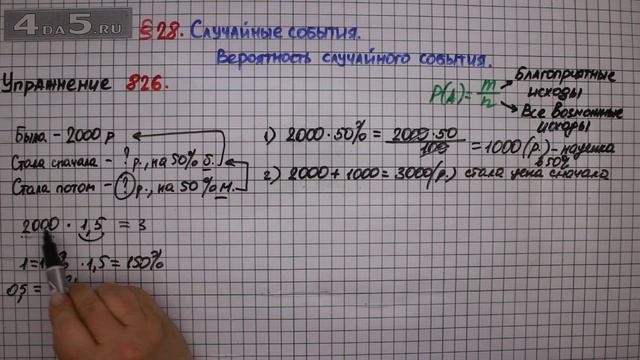 4DA5.RU
§28. Случайные события.
Вероятность случайного события.
Упражнение 826.
P(A)=m/n
Благоприятные исходы
Все возможные исходы
Была - 2000 р
Стала сначала - ? р., на 50% б.
Стала потом - ? р., на 50% м.
1) 2000 · 50% = 2000·50/100 = 1000(р.) - наценка
в 50%
2) 2000 + 1000 = 3000(р.) стала цена сначала
2000 · 1,5 = 3
1=1 · 1,5 = 150%
0,5 =